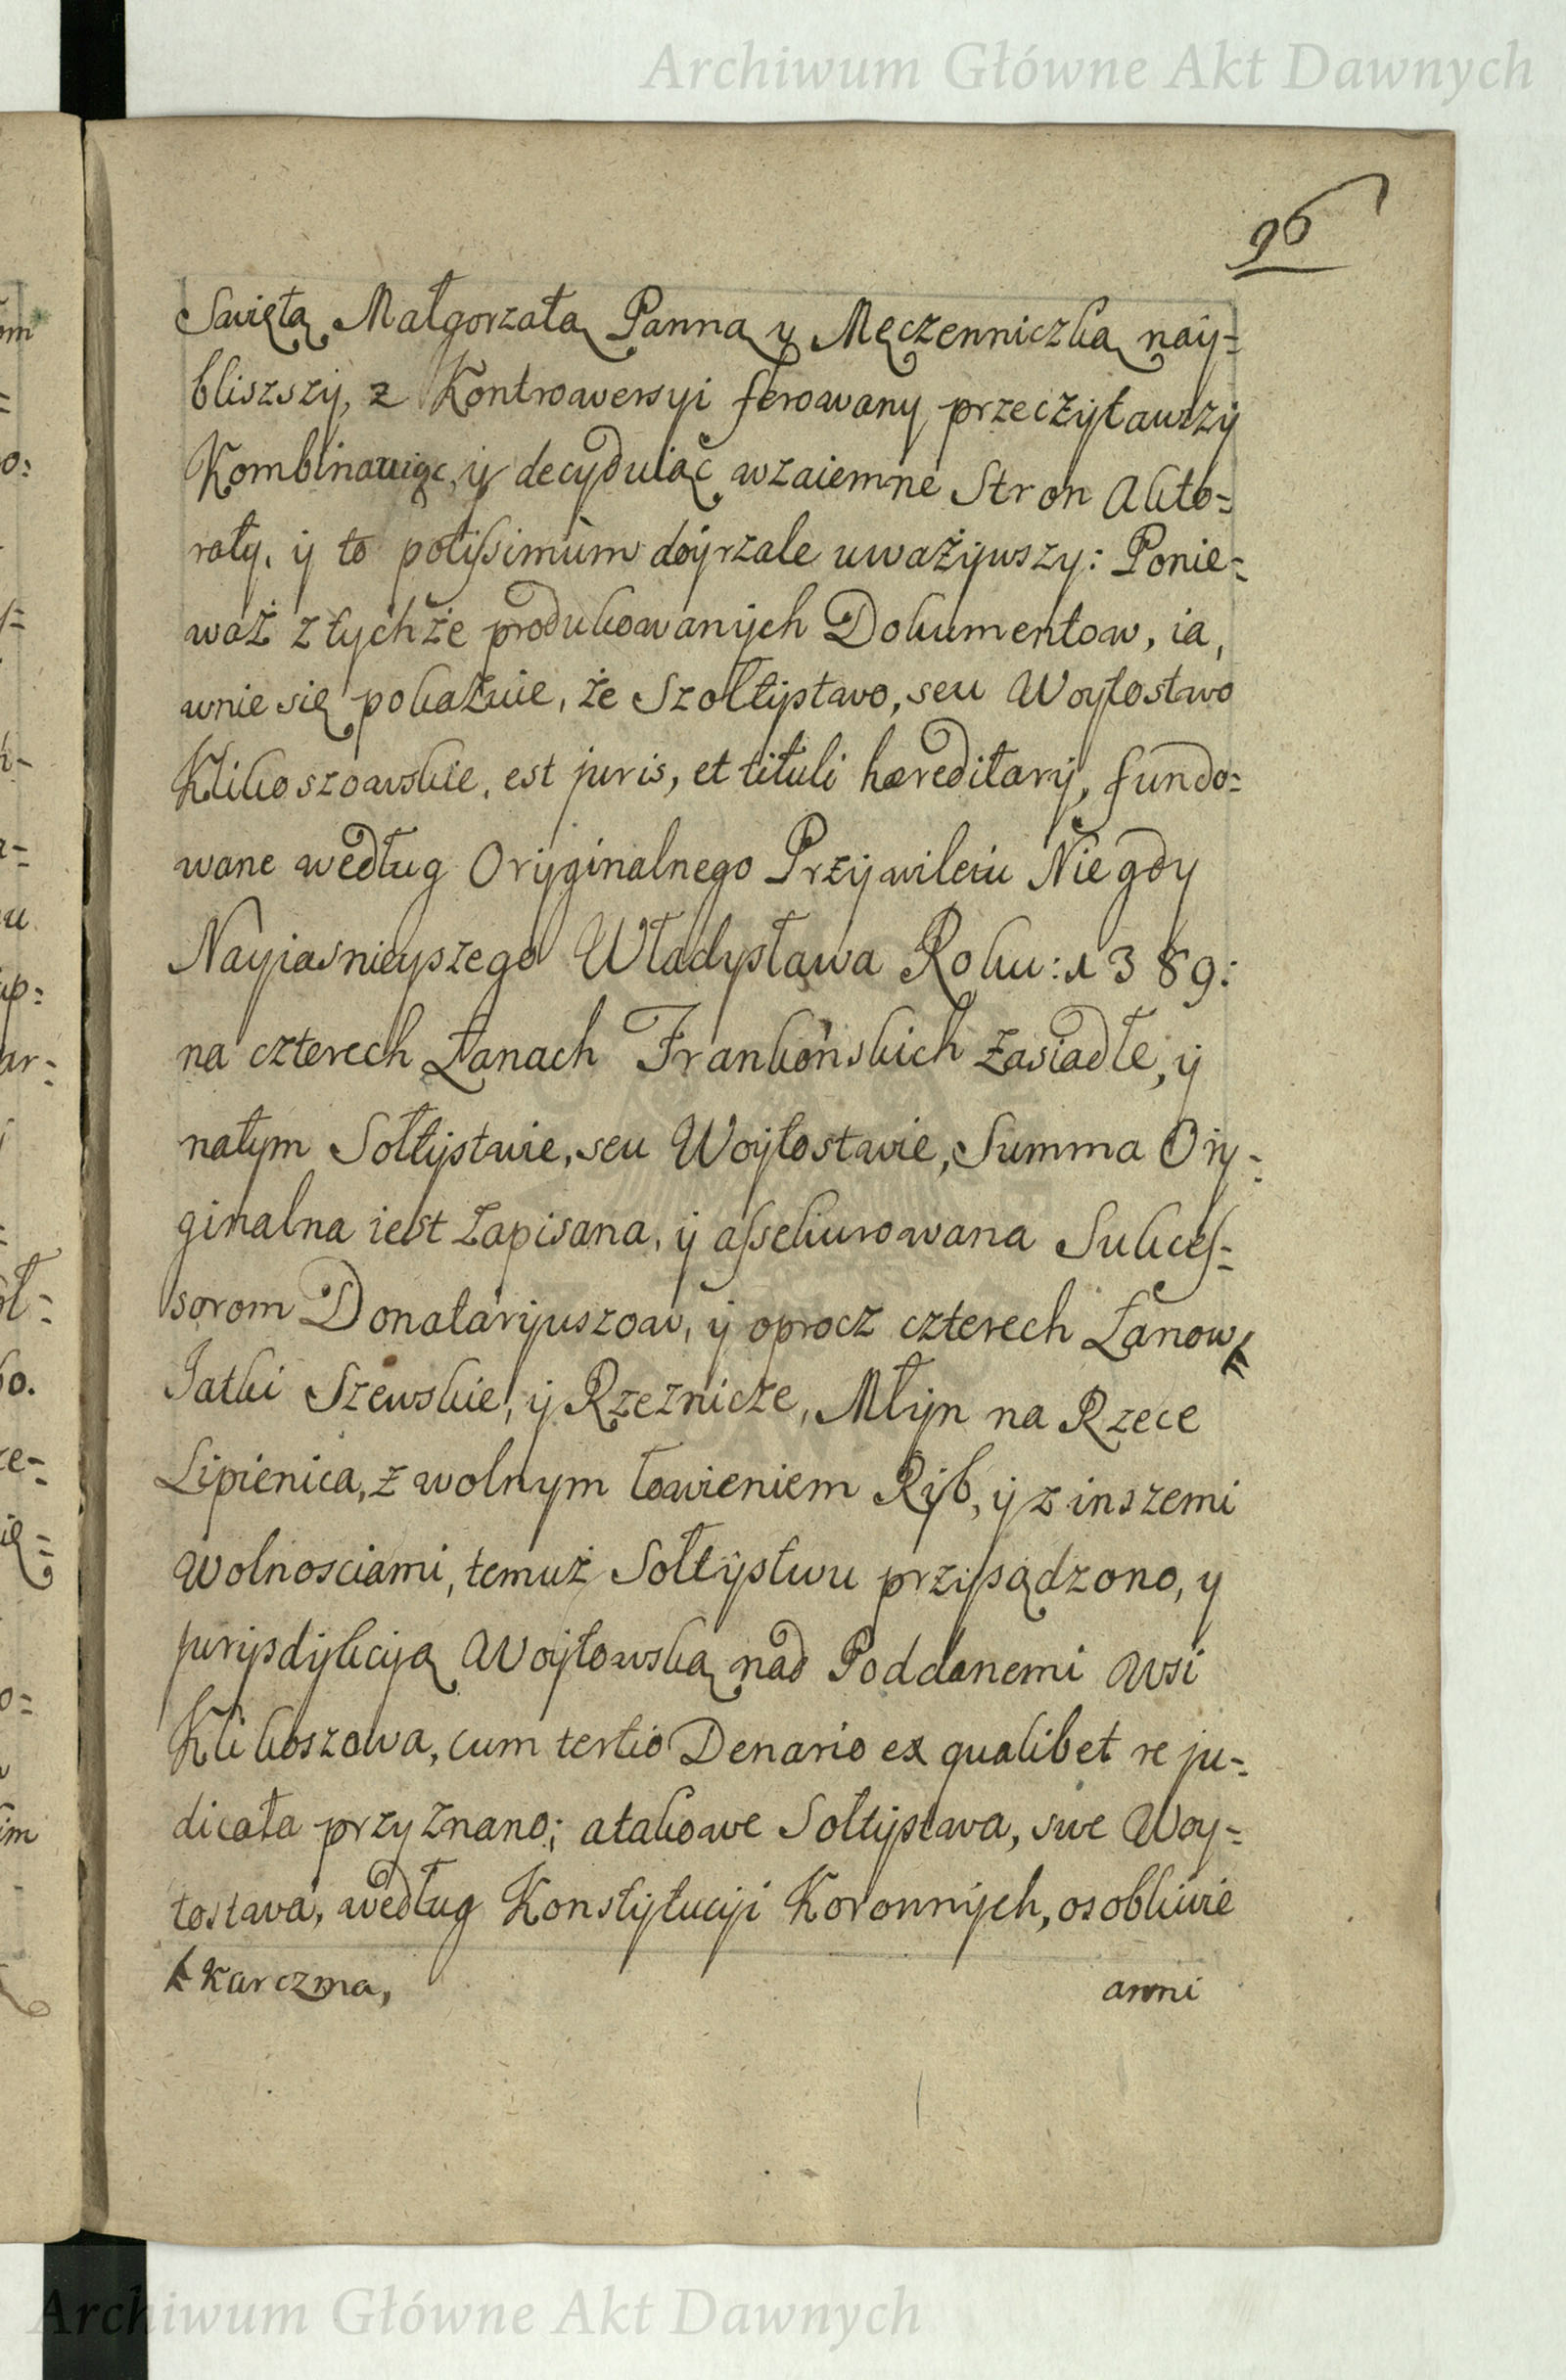 Archiwum Główne Akt Dawnych
96
Swiętą Małgorzatą Panną y Męczenniczką nay=
bliszszy, z Kontrowersyi ferowany przeczytawszy
Kombinuiąc, y decyduiąc wzaiemne Stron Akto=
raty, y to potissimum doyrzale uważywszy: Ponie=
waż z tychże produkowanych Dokumentow, ia,
wnie się pokazuie, że Szołtystwo, seu Woytostwo
Klikoszowskie, est juris, et tituli hæreditarij, fundo=
wane według Oryginalnego Przywileiu Niegdy
Nayiasnieyszego Władysława Roku: 1389:
na czterech Łanach Frankońskich zasiadłe, y
natym Sołtystwie, seu Woytostwie, Summa Ory=
ginalna iest zapisana, y assekurowana Sukces=
sorom Donataryuszow, y oprocz czterech Łanow,
Jatki Szewskie, y Rzeznicze, Młyn na Rzece
Lipienica, z wolnym łowieniem Ryb, y z inszemi
wolnosciami, temuż Sołtystwu przysądzono, y
jurysdykcyą Woytowską nad Poddanemi Wsi
Klikoszowa, cum tertio Denario ex qualibet re ju=
dicata przyznano; atakowe Sołtystwa, sive Woy=
tostwa, według Konstytucyi Koronnych, osobliwie
Karczma,
anni
Archiwum Główne Akt Dawnych